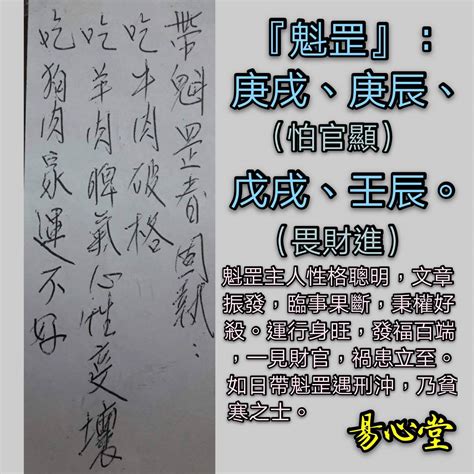 帶魁罡者固執：
吃牛肉破格
吃羊肉脾氣心性变壞
吃狗肉家運不好
『魁罡』：
庚戌、庚辰、
（怕官顯）
戊戌、壬辰。
（畏財進）
魁罡主人性格聰明，文章
振發，臨事果斷，秉權好
殺。運行身旺，發福百端
，一見財官，禍患立至。
如日帶魁罡遇刑沖，乃貧
寒之士。
易心堂